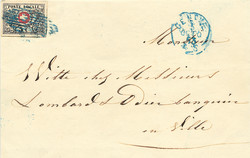 POSTE LOCALE
GENÈVE
Monsieur
Witte chez Messieurs
Lombard et Odier banquier
en Ville